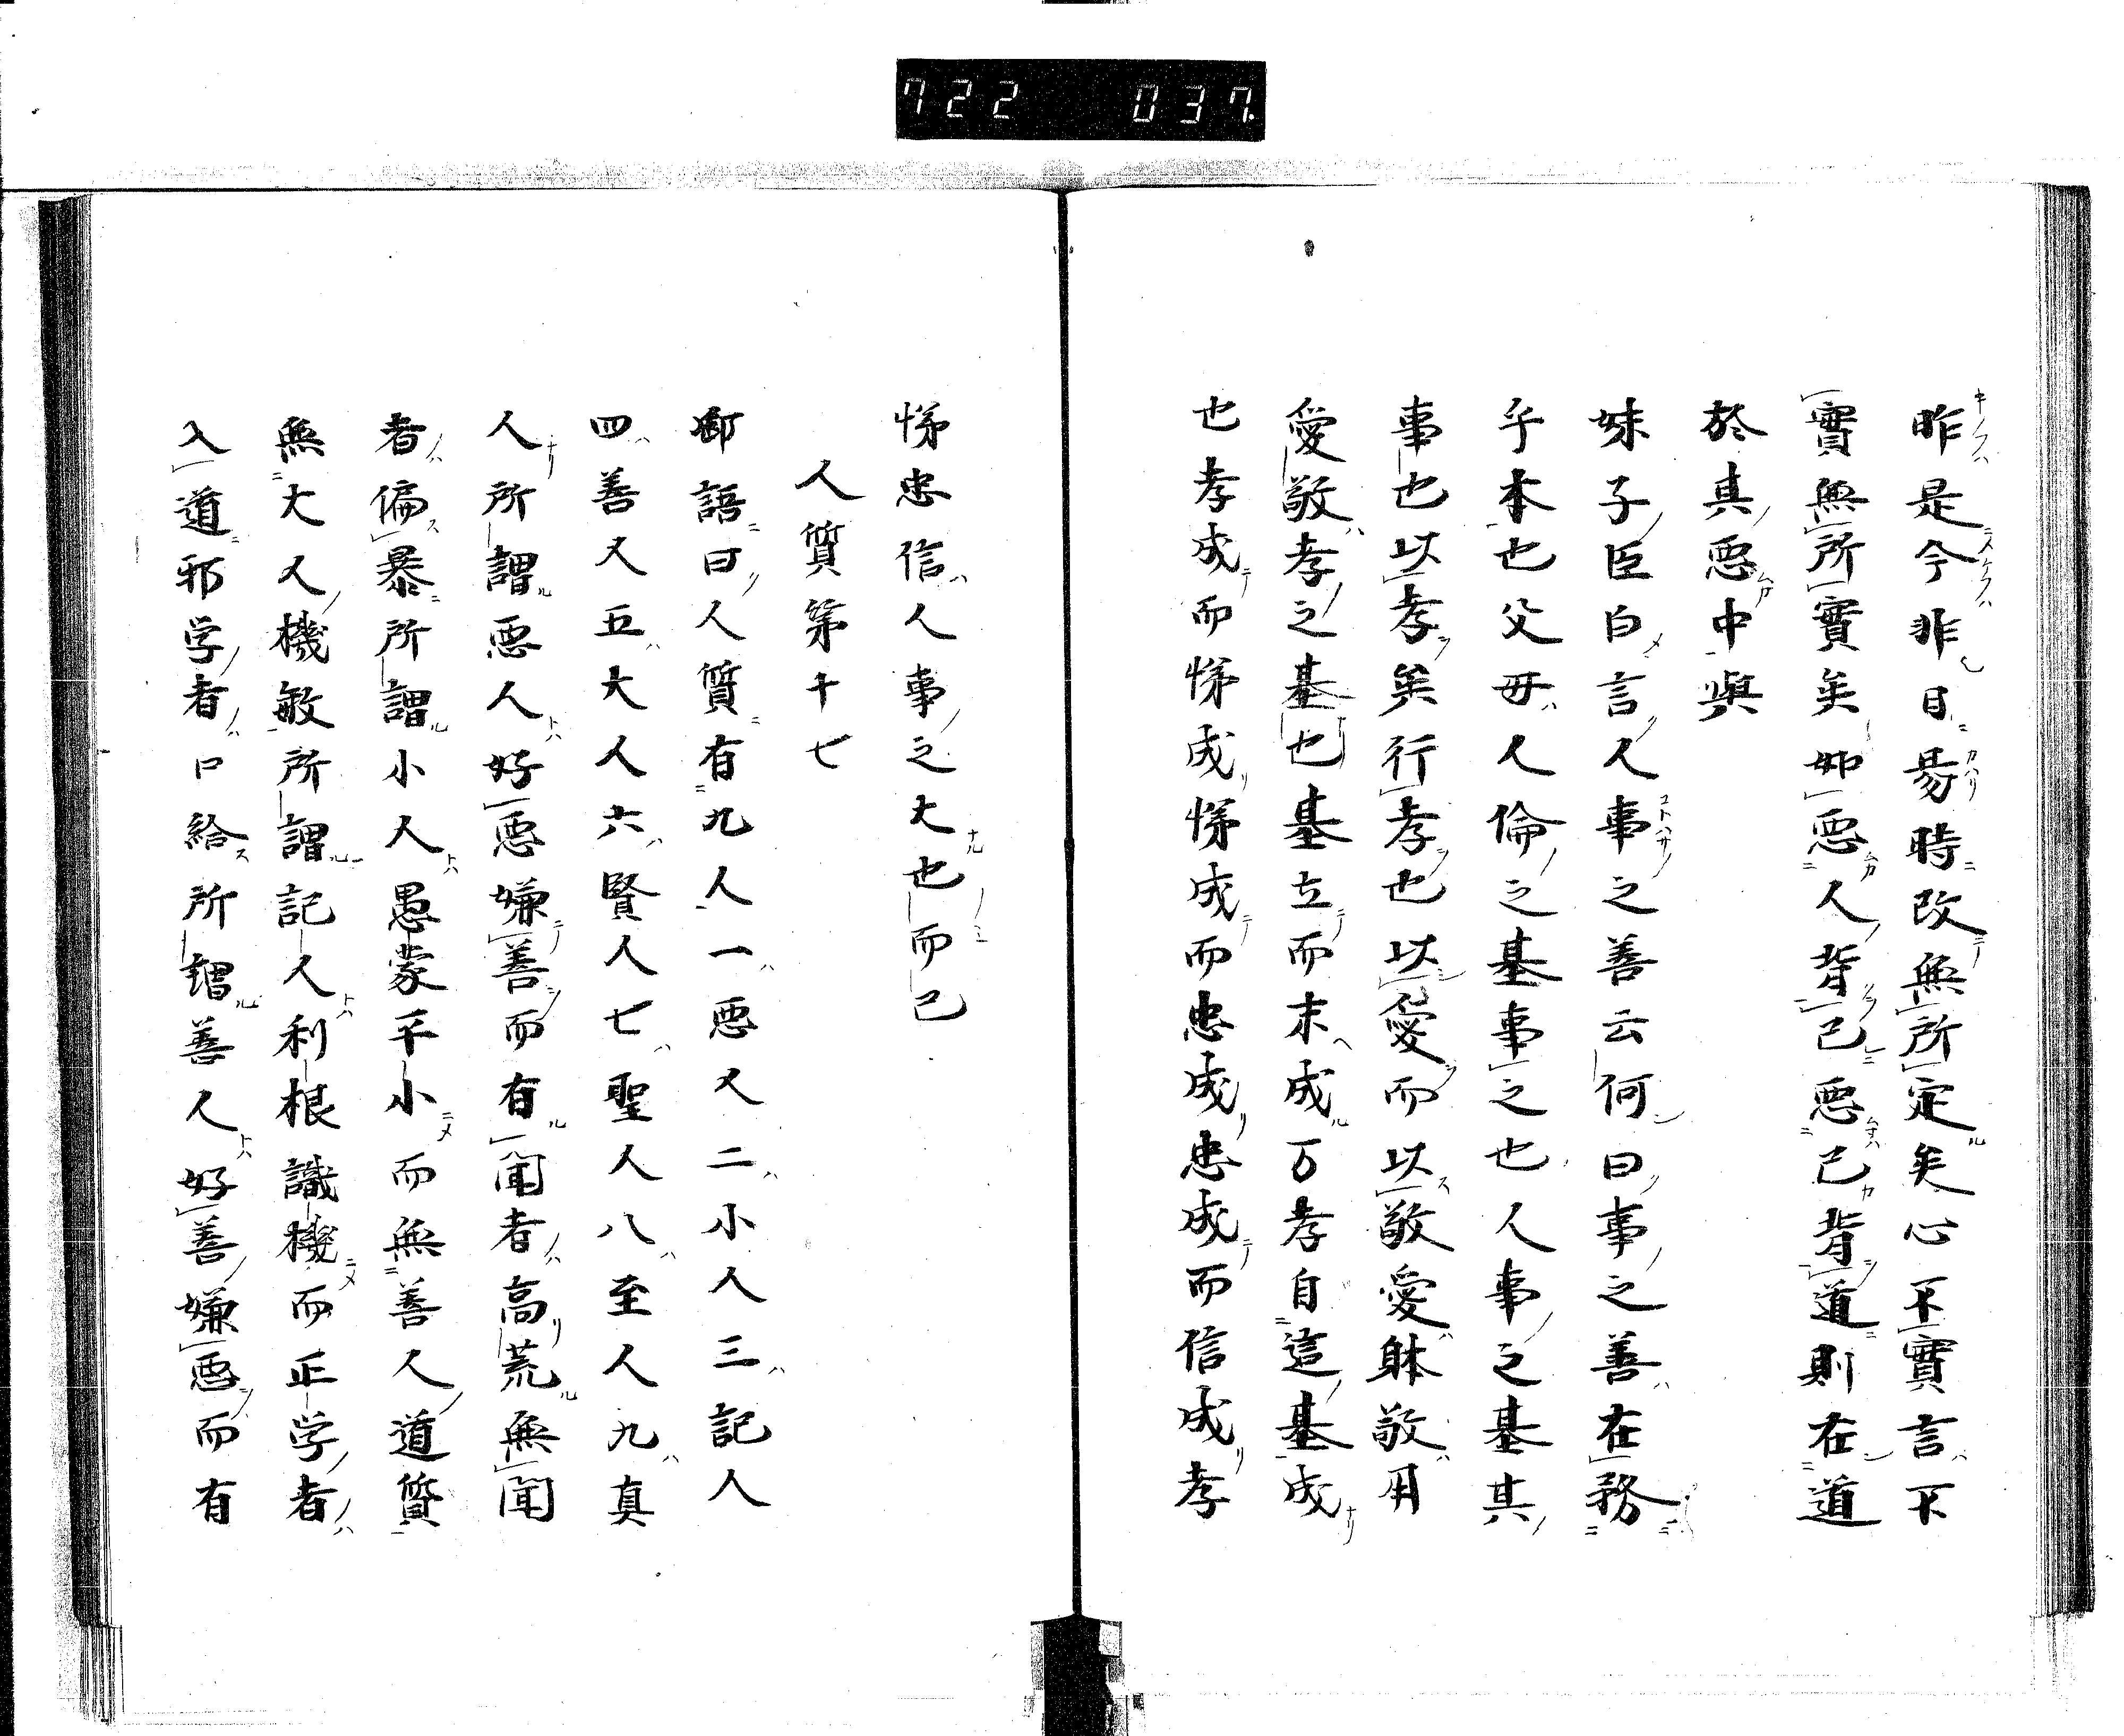 722 037
昨是今非日易時改無所定矣心不實言不
實無所實矣如悪人背己悪己背道則在道
於其悪中與
妹子臣白言人事之善云何曰事之善在務
乎本也父母人倫之基事之也人事之基其
事也以孝矣行孝也以愛而以敬愛躰敬用
愛敬孝之基也基立而末成万孝自這基成
也孝成而悌成悌成而忠成忠成而信成孝
悌忠信人事之大也而已
人質第十七
御語曰人質有九人一悪人二小人三記人
四善人五大人六賢人七聖人八至人九真
人所謂悪人好悪嫌善而有聞者高荒無聞
者偏暴所謂小人愚蒙平小而無善人道質
無大人機敏所謂記人利根識機而正学者
入道邪学者口給所謂善人好善嫌悪而有